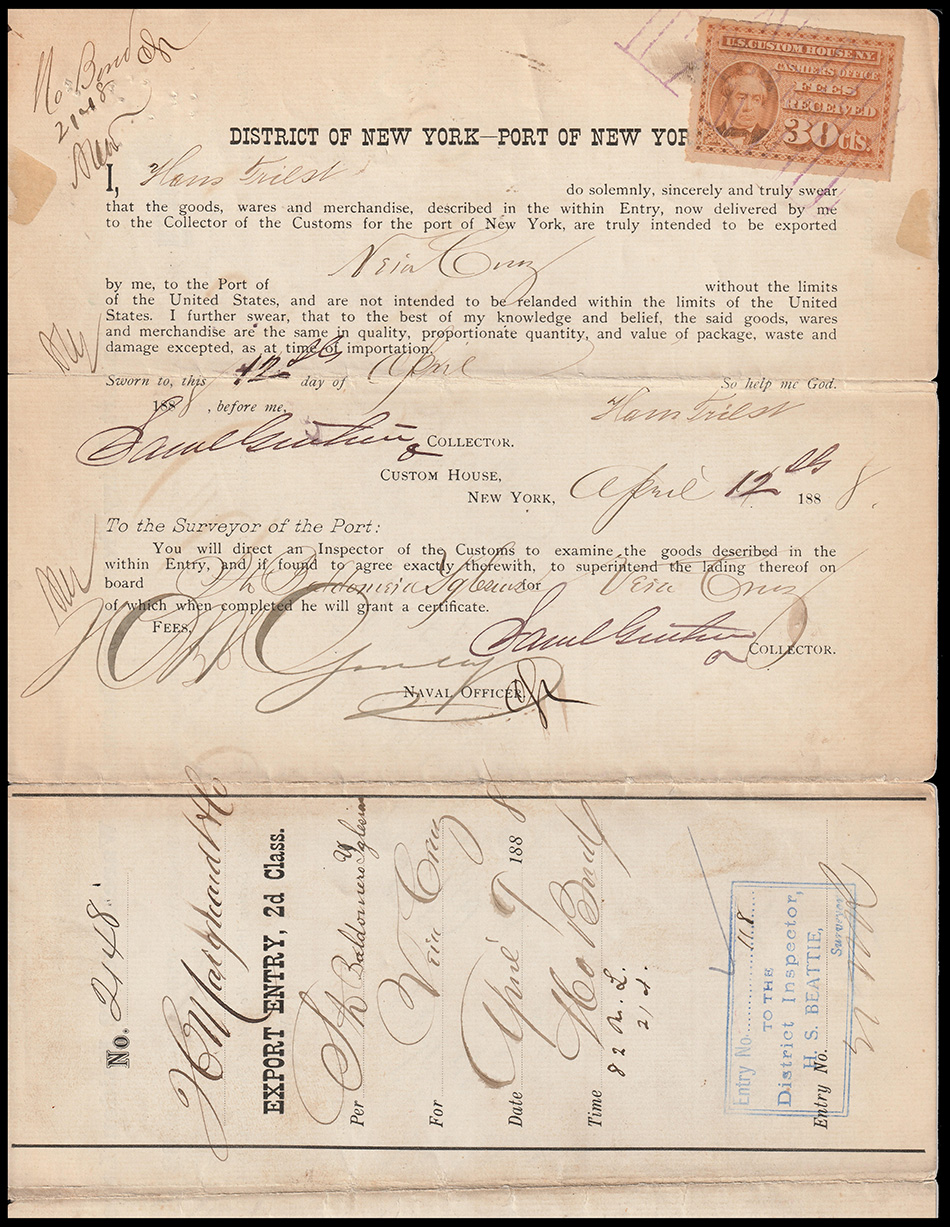 No Bond
2148
U.S. CUSTOM HOUSE N.Y.
CASHIER'S OFFICE
FEES
RECEIVED
30 CTS.
DISTRICT OF NEW YORK—PORT OF NEW YOR
I, Hans Triest do solemnly, sincerely and truly swear
that the goods, wares and merchandise, described in the within Entry, now delivered by me
to the Collector of the Customs for the port of New York, are truly intended to be exported
Vera Cruz
by me, to the Port of without the limits
of the United States, and are not intended to be relanded within the limits of the United
States. I further swear, that to the best of my knowledge and belief, the said goods, wares
and merchandise are the same in quality, proportionate quantity, and value of package, waste and
damage excepted, as at time of importation.
Sworn to, this 12th day of April So help me God.
1888, before me, Hans Triest
COLLECTOR.
CUSTOM HOUSE,
NEW YORK, April 12th 1888.
To the Surveyor of the Port:
You will direct an Inspector of the Customs to examine the goods described in the
within Entry, and if found to agree exactly therewith, to superintend the lading thereof on
board for Vera Cruz
of which when completed he will grant a certificate.
FEES,
COLLECTOR.
NAVAL OFFICER.
No. 2148
EXPORT ENTRY, 2d Class.
Per Baldomero Yglesias
For Vera Cruz
Date April 9 1888
Time No Bond
Entry No. 118
TO THE
District Inspector,
H. S. BEATTIE,
Surveyor
Entry No.